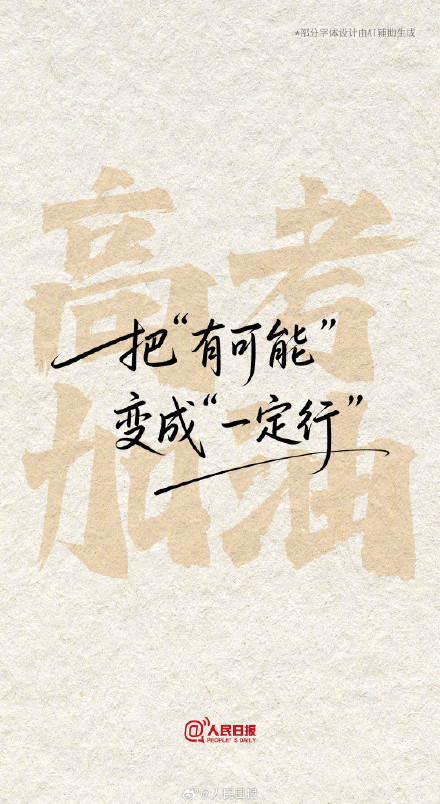 *部分字体设计由AI辅助生成
高考
加油
把“有可能”
变成“一定行”
@人民日报
PEOPLE'S DAILY
@人民日报